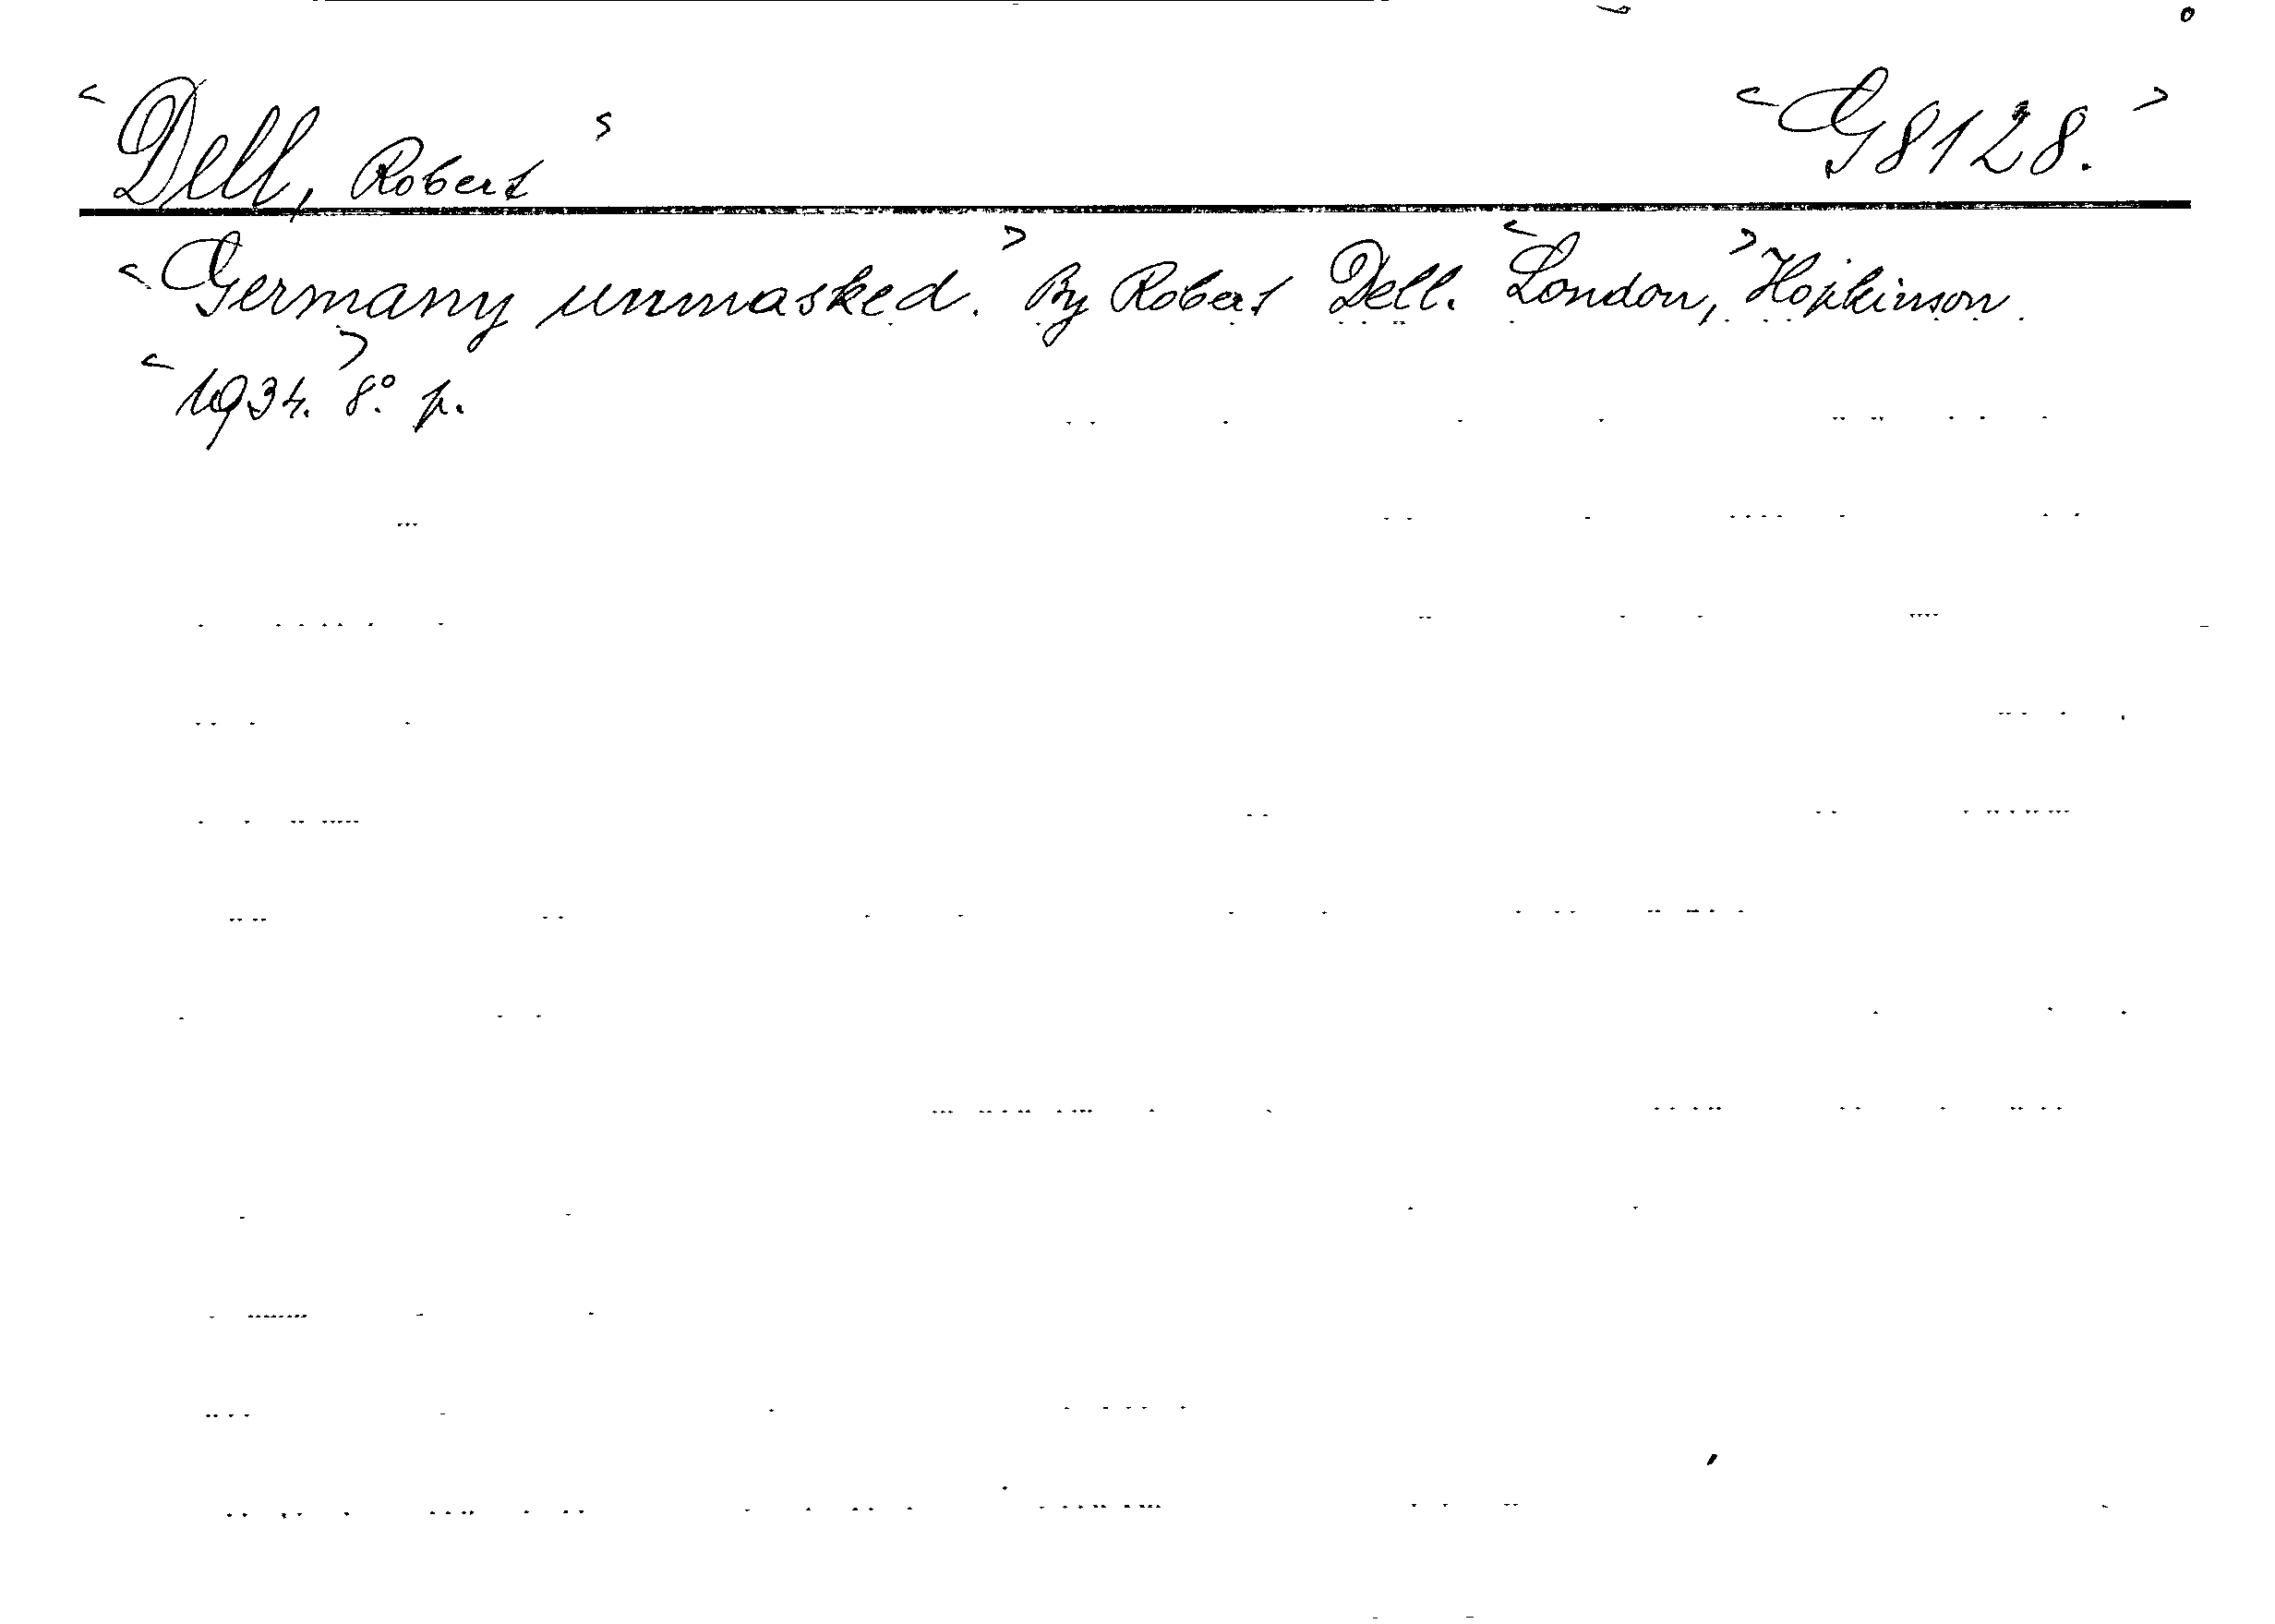 Dell, Robert G 8128.
Germany unmasked. By Robert Dell. London, Hopkinson.
1934. 8° p.